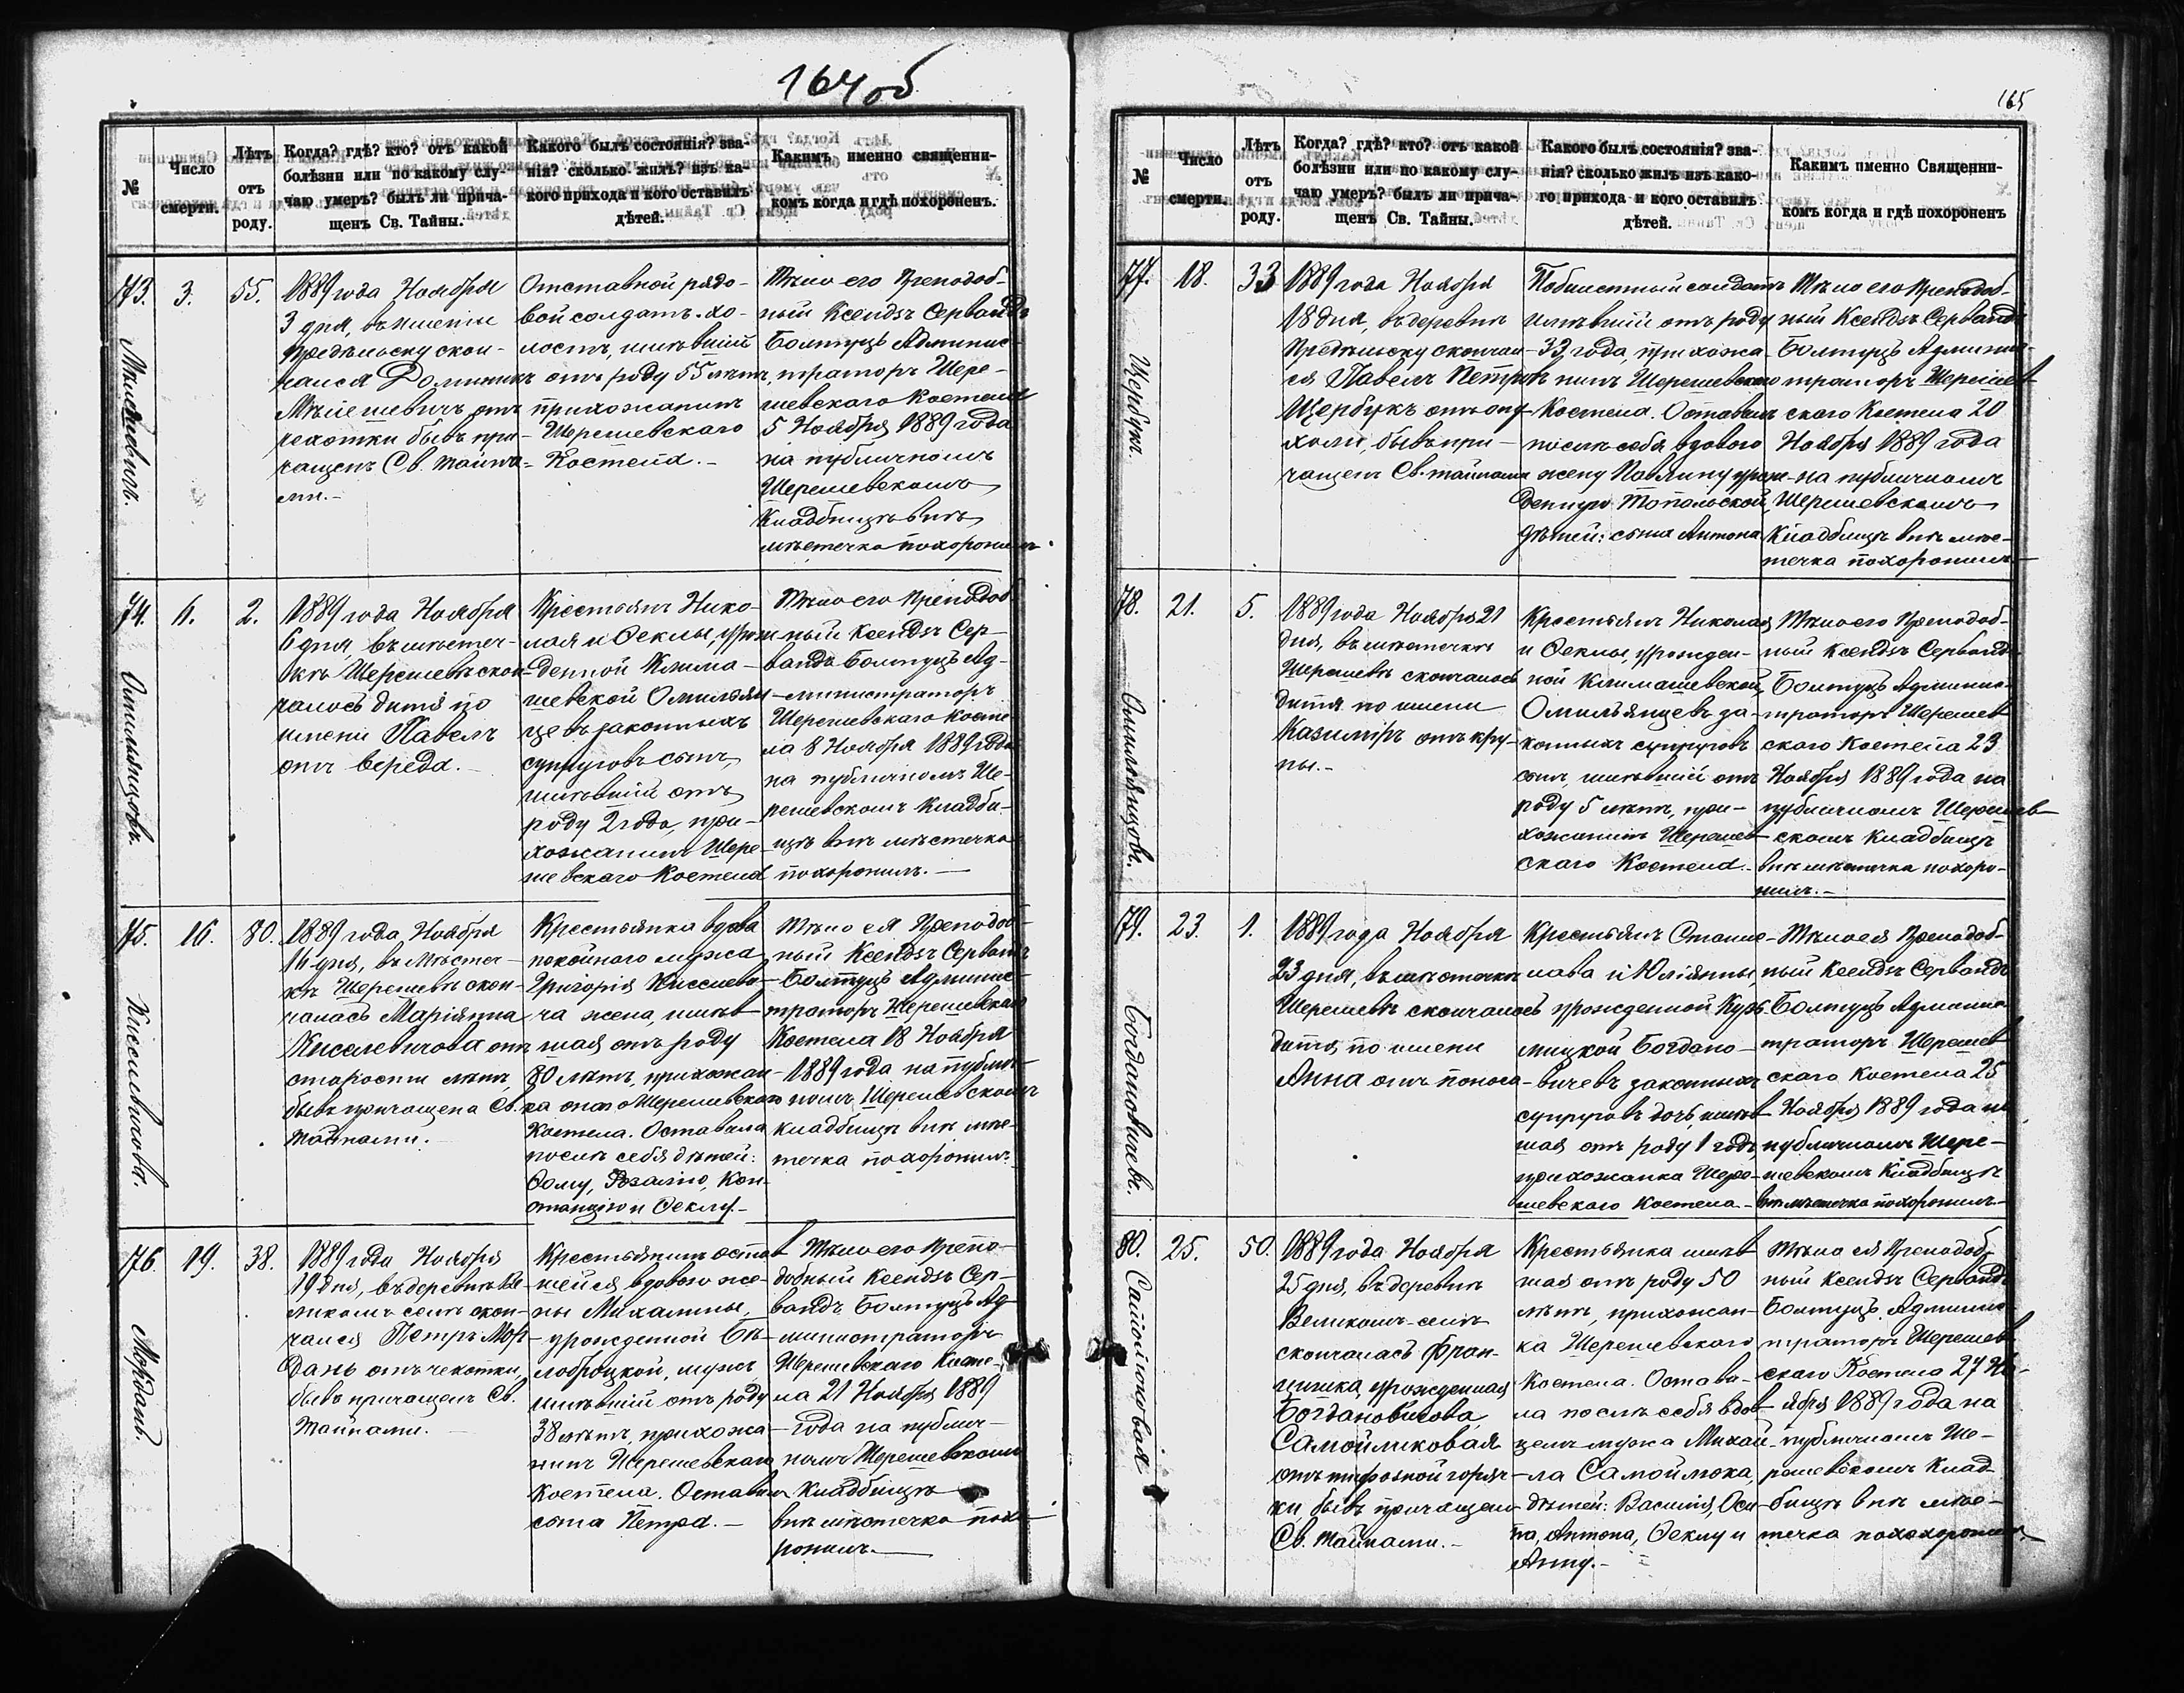 164 об
№
Число
смерти.
Лѣтъ
отъ
роду.
Когда? гдѣ? кто? отъ какой
болѣзни или по какому слу-
чаю умеръ? былъ ли прича-
щенъ Св. Тайны.
Какого былъ состоянія? зва-
нія? сколько жилъ? изъ ка-
кого прихода и кого оставилъ
дѣтей.
Какимъ именно священни-
комъ когда и гдѣ похороненъ.
73.
3.
55.
1889 года Ноября
3 дня, въ имѣніи
скон-
чался Доминикъ
отъ
чахотки бывъ при-
чащенъ Св. тайна-
ми.-
Отставной рядо-
вой солдатъ хо-
лостъ, имѣвшій
отъ роду 55 лѣтъ,
прихожанинъ
Шерешевскаго
Костела.-
Тѣло его Преподоб-
ный Ксендзъ Сервандъ
Болтуць Админис-
траторъ Шере-
шевскаго Костела
5 Ноября 1889 года
на публичномъ
Шерешевскомъ
Кладбищѣ внѣ
мѣстечка похоронилъ.
74.
6.
2.
Омильянцовъ.
1889 года Ноября
6 дня, въ мѣстеч-
кѣ Шерешевѣ скон-
чалось дитя по
имени Павелъ
отъ вереда.-
Крестьянъ Нико-
лая и Ѳеклы, урож-
денной Клима-
шевской Омильян-
цевъ законныхъ
супруговъ сынъ,
имѣвшій отъ
роду 2 года, при-
хожанинъ Шере-
шевскаго Костела
Тѣло его Преподоб-
ный Ксендзъ Сер-
вандъ Болтуць Ад-
министраторъ
Шерешевскаго Косте-
ла 8 Ноября 1889 года
на публичномъ Ше-
решевскомъ Кладби-
щѣ внѣ мѣстечка
похоронилъ.-
75.
16.
80.
Кисселевичова.
1889 года Ноября
16 дня, въ Мѣстеч-
кѣ Шерешевѣ скон-
чалась Маріянна
Киселевичова отъ
старости лѣтъ,
бывъ причащена Св.
тайнами.
Крестьянка вдова
покойнаго мужа
Григорія Кисселеви-
ча жена, имѣв-
шая отъ роду
80 лѣтъ, прихожан-
ка Шерешевскаго
Костела. Оставила
послѣ себя дѣтей:
Розалію, Кон-
станцію и Ѳеклу.-
Тѣло ея Преподоб-
ный Ксендзъ Сервандъ
Болтуць Админис-
траторъ Шерешевскаго
Костела 18 Ноября
1889 года на публич-
номъ Шерешевскомъ
кладбищѣ внѣ мѣс-
течка похоронилъ.
76.
19.
38.
Морданъ.
1889 года Ноября
19 дня, въ деревнѣ Ве-
ликомъ селѣ скон-
чался Петръ Мор-
данъ отъ чахотки,
бывъ причащенъ Св.
Тайнами.
Крестьянинъ остав-
шейся вдовою же-
ны Михалины,
урожденной Бѣ-
лоброцкой, мужъ
имѣвшій отъ роду
38 лѣтъ, прихожа-
нинъ Шерешевскаго
Костела. Оставилъ
сына Петра.-
Тѣло его Препо-
добный Ксендзъ Сер-
вандъ Болтуць Ад-
министраторъ
Шерешевскаго Косте-
ла 21 Ноября 1889
года на публич-
номъ Шерешевскомъ
Кладбищѣ
внѣ мѣстечка похо-
ронилъ.-
165
№
Число
смерти.
Лѣтъ
отъ
роду.
Когда? гдѣ? кто? отъ какой
болѣзни или по какому слу-
чаю умеръ? былъ ли прича-
щенъ Св. Тайны.
Какого былъ состоянія? зва-
нія? сколько жилъ изъ како-
го прихода и кого оставилъ
дѣтей.
Какимъ именно Священни-
комъ когда и гдѣ похороненъ
77.
18.
33
Щербукъ.
1889 года Ноября
18 дня, въ деревнѣ
скончал-
ся Павелъ Петровъ
Щербукъ отъ опу-
холи, бывъ при-
чащенъ Св. тайнами
солдатъ
имѣвшій отъ роду
33 года, прихожа-
нинъ Шерешевскаго
Костела. Оставилъ
послѣ себя вдовою
жену Павлину урож-
денную Топольской,
дѣтей: сына Антона
Тѣло его Преподоб-
ный Ксендзъ Сервандъ
Болтуць Админис-
траторъ Шерешев-
скаго Костела 20
Ноября 1889 года
на публичномъ
Шерешевскомъ
Кладбищѣ внѣ мѣс-
течка похоронилъ-
78.
21.
5.
Омильянцовъ.
1889 года Ноября 21
дня, въ мѣстечкѣ
Шерешевѣ скончалось
дитя по имени
Казиміръ отъ кру-
пы.-
Крестьянъ Николая
и Ѳеклы, урожден-
ной Климашевской,
Омильянцевъ за-
конныхъ супруговъ
сынъ, имѣвшій отъ
роду 5 лѣтъ, при-
хожанинъ Шерешев-
скаго Костела.-
Тѣло его Преподоб-
ный Ксендзъ Сервандъ
Болтуць Админис-
траторъ Шерешев-
скаго Костела 23
Ноября 1889 года на
публичномъ Шерешев-
скомъ Кладбищѣ
внѣ мѣстечка похоро-
нилъ.-
79.
23.
1.
Богдановичевъ.
1889 года Ноября
23 дня, въ мѣстечкѣ
Шерешевѣ скончалось
дитя, по имени
Анна отъ поноса
Крестьянъ Станис-
лава и Юліянны,
урожденной Кузь-
мицкой Богдано-
вичевъ законныхъ
супруговъ дочь, имѣв-
шая отъ роду 1 годъ
прихожанка Шере-
шевскаго Костела-
Тѣло ея Преподоб-
ный Ксендзъ Сервандъ
Болтуць Админис-
траторъ Шерешев-
скаго Костела 25
Ноября 1889 года на
публичномъ Шере-
шевскомъ Кладбищѣ
внѣ мѣстечка похоронилъ-
80.
25.
50.
Самойлюковая
1889 года Ноября
25 дня, въ деревнѣ
Великомъ-селѣ
скончалась Фран-
цишка, урожденная
Богдановичова,
Самойлюковая
отъ тифозной горяч-
ки бывъ причащена
Св. тайнами.-
Крестьянка имѣв-
шая отъ роду 50
лѣтъ, прихожан-
ка Шерешевскаго
Костела. Остави-
ла послѣ себя вдов-
цемъ мужа Михаи-
ла Самойлюка,
дѣтей: Василія, Оси-
па, Антона, Ѳеклу и
Анну.-
Тѣло ея Преподоб-
ный Ксендзъ Сервандъ
Болтуць Админис-
траторъ Шерешев-
скаго Костела 27 Но-
ября 1889 года на
публичномъ Ше-
решевскомъ Клад-
бищѣ внѣ мѣс-
течка